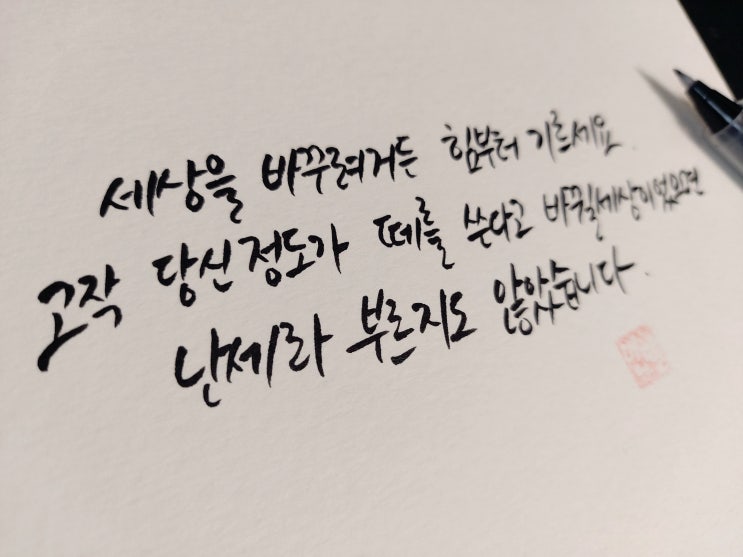 세상을 바꾸려거든 힘부터 기르세요.
고작 당신정도가 떼를 쓴다고 바뀔세상이었으면
난제라 부른지도 않았습니다.